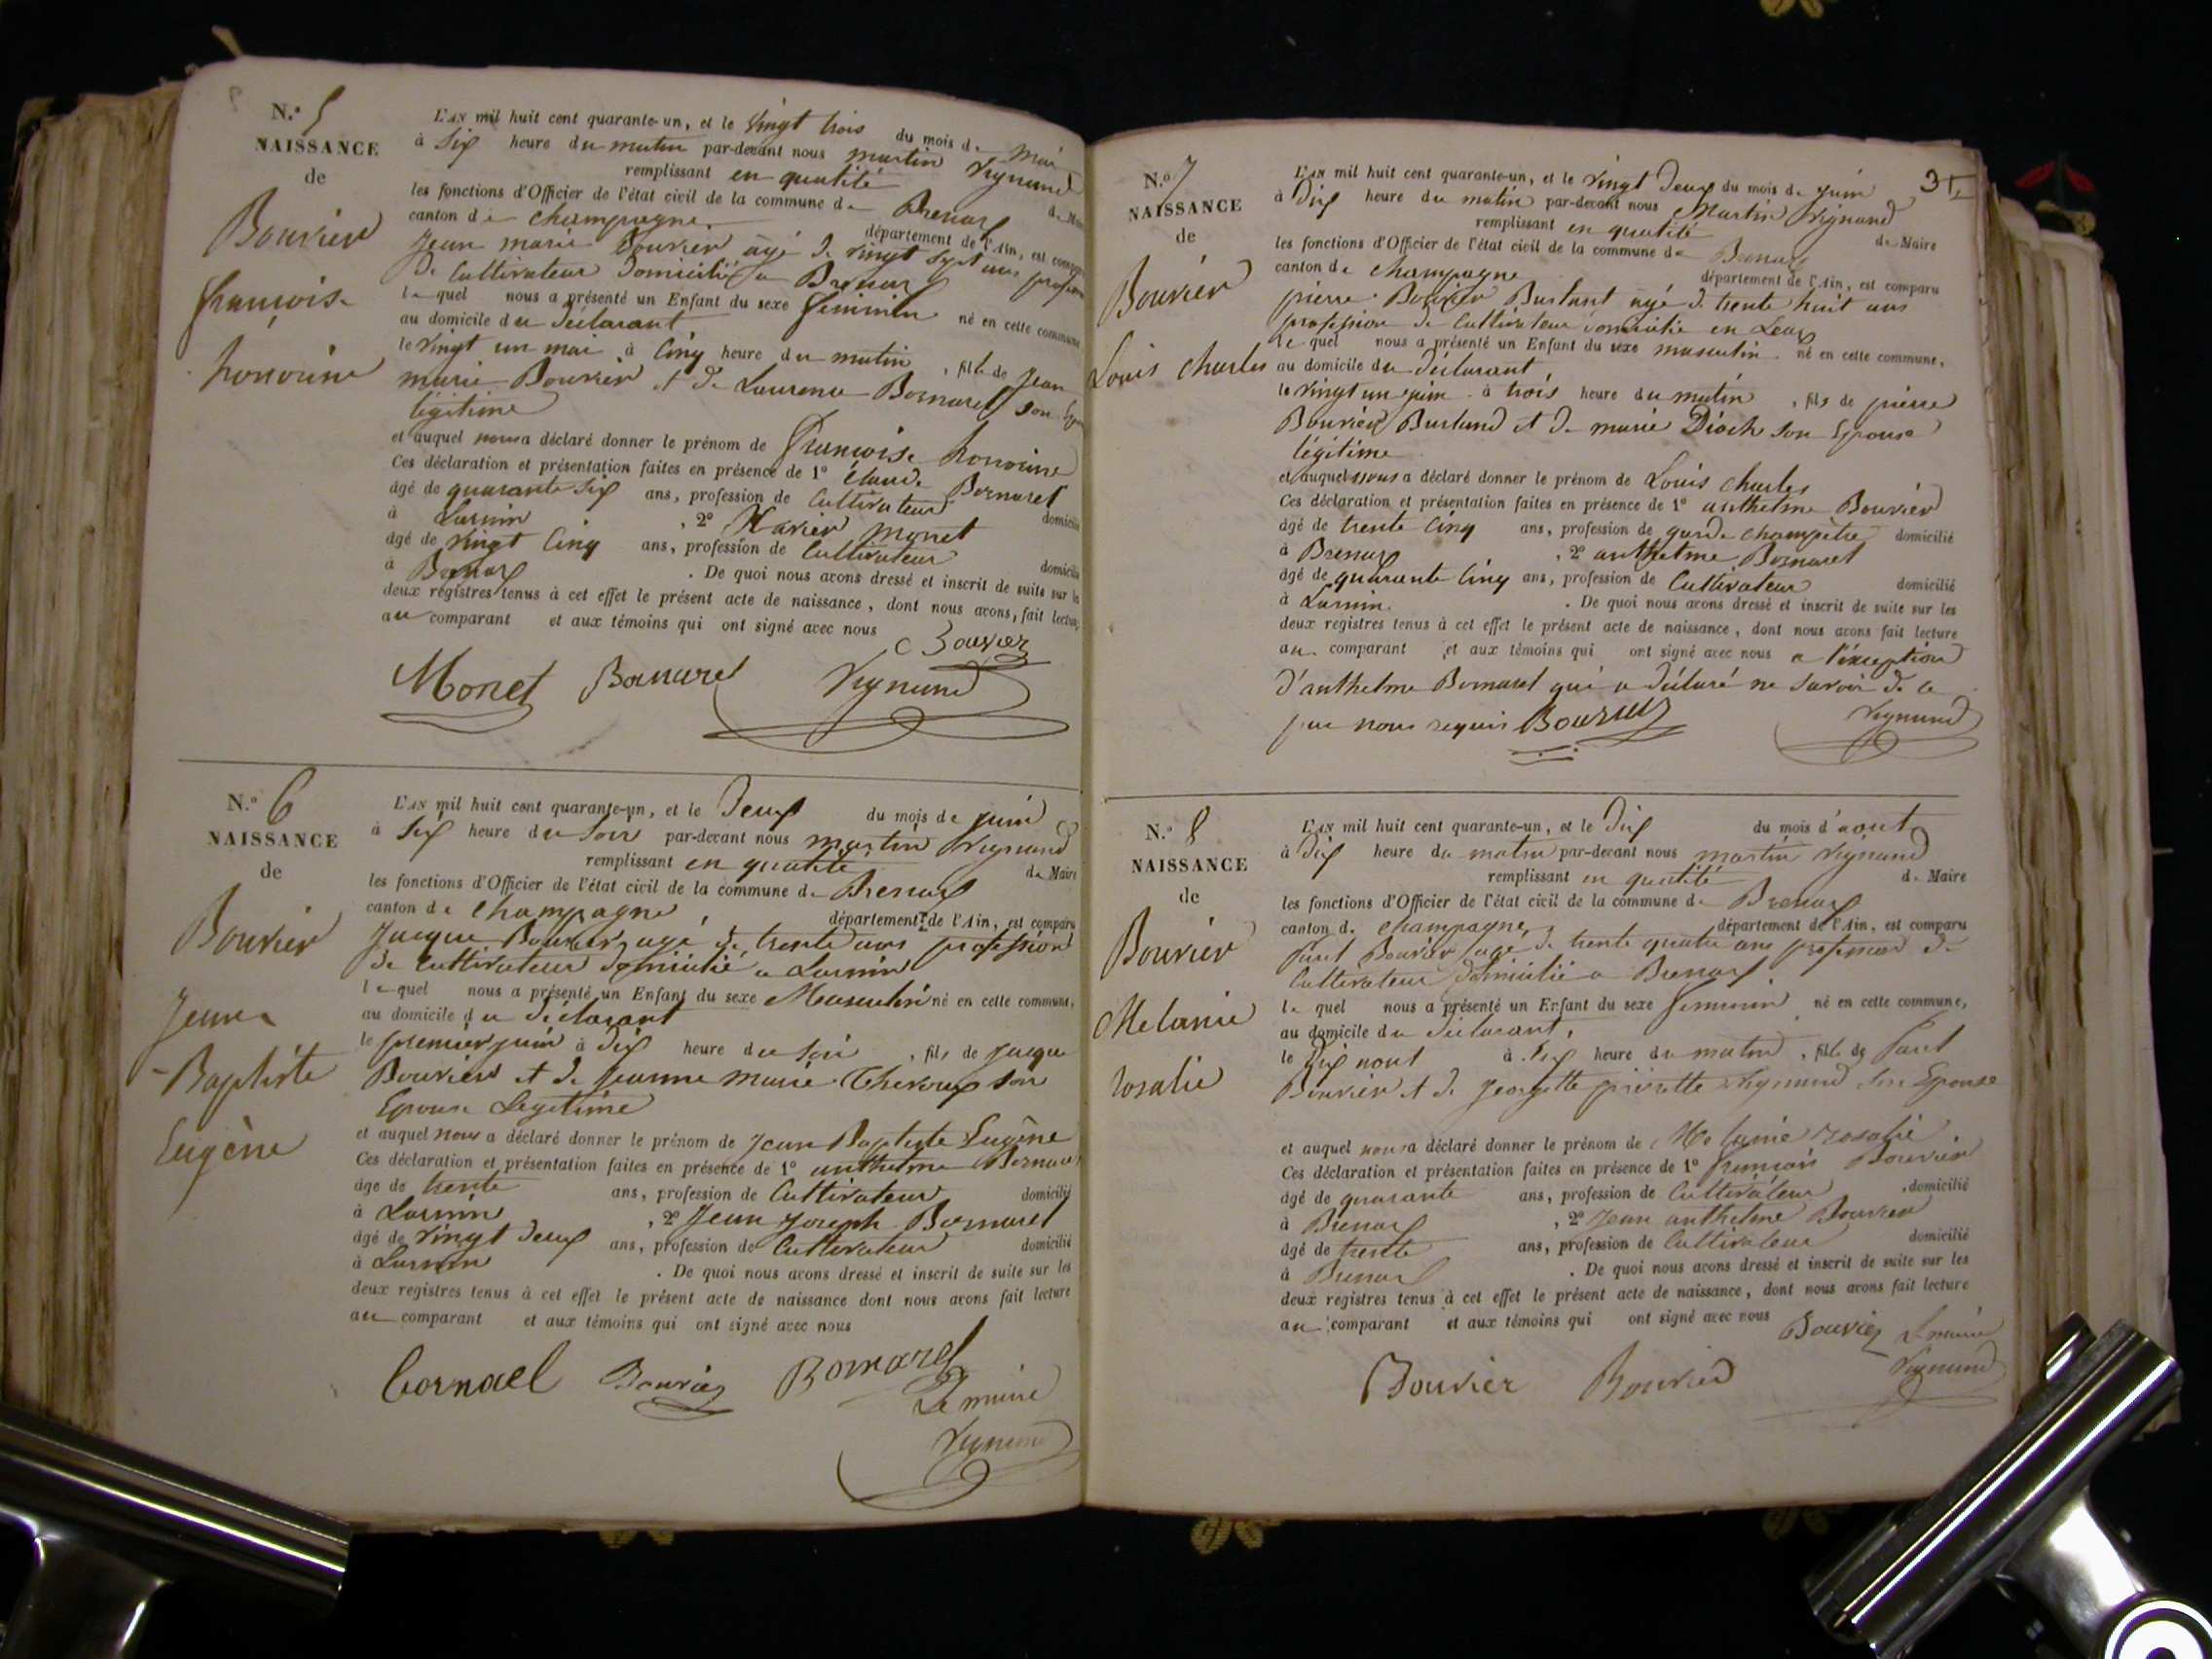 N.º 5
NAISSANCE
de
Bouvier
françoise
honorine
L'AN mil huit cent quarante-un, et le vingt trois du mois de mai
à Six heure du matin par-devant nous martin Vignand
remplissant en qualité de Maire
les fonctions d'Officier de l'état civil de la commune de Brenaz
canton de Champagne département de l'Ain, est comparu
Jean marie Bouvier agé de vingt sept ans profession
de Cultivateur Domicilié a Brenaz
lequel nous a présenté un Enfant du sexe féminin né en cette commune
au domicile du déclarant
le vingt un mai à Cinq heure du matin, fille de Jean
marie Bouvier et de Laurence Bornarel son Epouse
légitime
et auquel nous a déclaré donner le prénom de françoise honorine
Ces déclaration et présentation faites en présence de 1º Claude Bornarel
âgé de quarante Six ans, profession de Cultivateur domicilié
à Lurnin, 2º Xavier Monet
âgé de vingt Cinq ans, profession de Cultivateur domicilié
à Brenaz. De quoi nous avons dressé et inscrit de suite sur les
deux registres tenus à cet effet le présent acte de naissance, dont nous avons, fait lecture
au comparant et aux témoins qui ont signé avec nous
Bouvier
Monet Bornarel Vignand
N.º 6
NAISSANCE
de
Bouvier
Jean
-Baptiste
Eugène
L'AN mil huit cent quarante-un, et le Deux du mois de juin
à Six heure du Soir par-devant nous martin Vignand
remplissant en qualité de Maire
les fonctions d'Officier de l'état civil de la commune de Brenaz
canton de Champagne département de l'Ain, est comparu
Jacque Bouvier agé de trente ans profession
de Cultivateur domicilié a Lurnin
lequel nous a présenté un Enfant du sexe Masculin né en cette commune,
au domicile du déclarant
le premier juin à Dix heure du Soir, fils de Jacque
Bouvier et de Jeanne Marie Theroux son
Epouse Légitime
et auquel nous a déclaré donner le prénom de Jean Baptiste Eugène
Ces déclaration et présentation faites en présence de 1º anthelme Bornarel
âgé de trente ans, profession de Cultivateur domicilié
à Lurnin, 2º Jean Joseph Bornarel
âgé de vingt Deux ans, profession de Cultivateur domicilié
à Lurnin. De quoi nous avons dressé et inscrit de suite sur les
deux registres tenus à cet effet le présent acte de naissance dont nous avons fait lecture
au comparant et aux témoins qui ont signé avec nous
Cornael Bouvier Bornarel
Le maire
Vignand
N.º 7
NAISSANCE
de
Bouvier
Louis Charles
L'AN mil huit cent quarante-un, et le vingt Deux du mois de juin
à Dix heure du matin par-devant nous Martin Vignand
remplissant en qualité de Maire
les fonctions d'Officier de l'état civil de la commune de Brenaz
canton de Champagne département de l'Ain, est comparu
pierre Bouvier Burtant agé de trente huit ans
profession de Cultivateur domicilié en Leaz
lequel nous a présenté un Enfant du sexe masculin né en cette commune,
au domicile du déclarant
le vingt un juin à trois heure du matin, fils de pierre
Bouvier Burtand et de marie Dioch son Epouse
légitime
et auquel nous a déclaré donner le prénom de Louis Charles
Ces déclaration et présentation faites en présence de 1º anthelme Bouvier
âgé de trente Cinq ans, profession de garde champêtre domicilié
à Brenaz, 2º anthelme Bornarel
âgé de quarante Cinq ans, profession de Cultivateur domicilié
à Lurnin. De quoi nous avons dressé et inscrit de suite sur les
deux registres tenus à cet effet le présent acte de naissance, dont nous avons fait lecture
au comparant et aux témoins qui ont signé avec nous a l'éxeption
d'anthelme Bornarel qui a déclaré ne savoir de ce
par nous requis Bouvier Vignand
N.º 8
NAISSANCE
de
Bouvier
Melanie
rosalie
L'AN mil huit cent quarante-un, et le Dix du mois d'aout
à Dix heure du matin par-devant nous martin Vignand
remplissant en qualité de Maire
les fonctions d'Officier de l'état civil de la commune de Brenaz
canton de Champagne, département de l'Ain, est comparu
Paul Bouvier agé de trente quatre ans profession de
Cultivateur domicilié a Brenaz
lequel nous a présenté un Enfant du sexe féminin né en cette commune,
au domicile du déclarant,
le Dix aout à Six heure du matin, fille de Paul
Bouvier et de Georgette pierrette Vignand Son Epouse
et auquel nous a déclaré donner le prénom de Melanie rosalie
Ces déclaration et présentation faites en présence de 1º françois Bouvier
âgé de quarante ans, profession de Cultivateur, domicilié
à Brenaz, 2º Jean anthelme Bouvier
âgé de trente ans, profession de Cultivateur domicilié
à Brenaz. De quoi nous avons dressé et inscrit de suite sur les
deux registres tenus à cet effet le présent acte de naissance, dont nous avons fait lecture
au comparant et aux témoins qui ont signé avec nous
Bouvier Le maire
Bouvier Bouvier Vignand